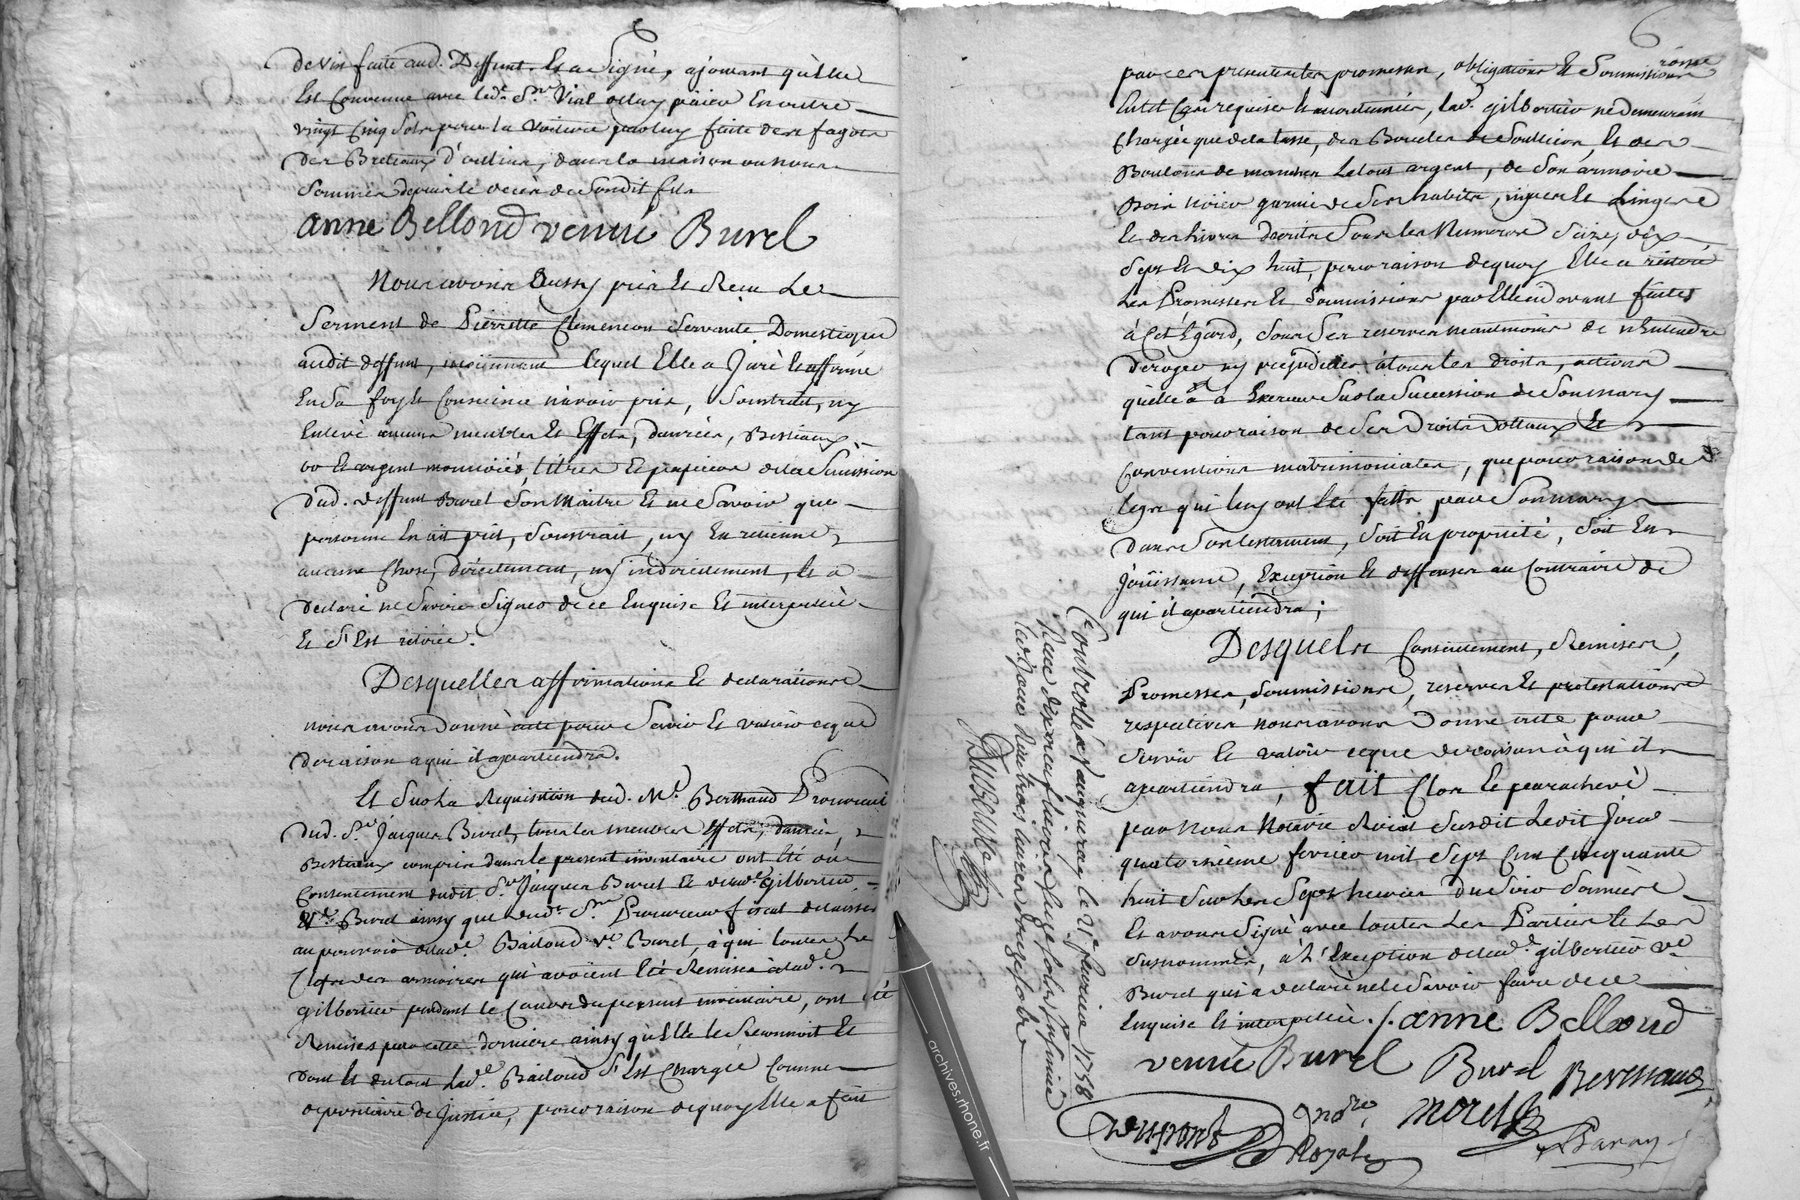 de vin faite aud. Deffunt. Et a Signé, ajoutant qu'elle
Est Convenue avec led. Sr. Vial de luy païer En outre
vingt Cinq Sols pour la voiture par luy faite des fagots
des Breteaux d'oulins, dans la maison ou nous
Sommes depuis le decès de Sondit fils
anne Bellond veuve Burel
Nous avons Aussy pris et Recu Le
Serment de Pierrette Clemencon Servante Domestique
audit deffunt, moïennant lequel Elle a Juré et affirmé
En Sa foy et Conscience n'avoir pris, Soustrait, ny
Enlevé aucuns meubles Et Effets, danrées, Bestiaux,
or Et argent monnoïés, titres Et papiers de la Succession
dud. deffunt Burel Son Maitre Et ne Savoir que
personne En ait prit, Soustrait, ny En retienne
aucune Chose, directement, ny indirectement, Et a
declaré ne Savoir Signer de ce Enquise Et interpellée
Et S'Est retirée.
Desquelles affirmations Et declarations
nous avons donné acte pour Servir Et valoir ce que
de raison a qui il apartiendra.
Et Sur La Requisition dud. Me. Berthaud Procureur
dud. Sr. Jacques Burel, tous les meubles Effets, danrées,
Bestiaux compris dans le present inventaire ont Eté du
Consentement dudit Sr. Jacques Burel Et de lad. Gilbertier
Ve. Burel ainsy que dudt. Sr. Procureur fiscal delaissés
au pouvoir de lade. Bailoud Ve. Burel, à qui toutes Les
Clefs des armoires qui avoient Eté Remises à lade.
gilbertier pendant le Cours du present inventaire, ont été
Remises par cette derniere ainsy qu'Elle le Reconnoit Et
dont Et du tout lade. Bailoud S'Est Chargée Comme
depositaire de Justice, pour raison de quoy Elle a fait
6
par ces presentes les promesses, obligations Et Soumissions
à ce
requises Et accoutumées, lad. gilbertier ne demeurant
Chargée que de la tasse, des Boucles de Soulliers, Et des
Boutons de manches Le tout argent, de Son armoire
Bois noïer garnie de Ses habits, nipes Et Linges
Et des livres decrits Sous les Numeros Seize, dix
Sept Et dix huit, pour raison de quoy Elle a réitéré
Les Promesses Et Soumissions par Elle cy devant faites
à Cet Egard, Sous Ses reserves neantmoins de n'Entendre
deroger ny prejudicier à tous les droits, actions
qu'elle a à Exercer Sur la Succession de Son mary
tant pour raison de Ses Droits dottaux Et
Conventions matrimoniales, que pour raison des
legs qui luy ont Eté faits par Son mary
dans Son testament, Soit En propriété, Soit En
Joüissance, Exception Et deffenses au Contraire de
qui il apartiendra;
Desquels Consentement, Remises,
Promesses, Soumissions, reserves Et protestations
respectives nous avons Donné acte pour
Servir Et valoir ce que de raison à qui il
apartiendra, fait Clos Et parachevé
par Nous Notaire Roïal Susdit Ledit Jour
quatorzième fevrier mil Sept Cens Cinquante
huit Sur Les Sept heures du Soir Sonnées
Et avons Signé avec toutes Les Parties Et Les
Susnommés, à L'Exception de lade. gilbertier Ve.
Burel qui a declaré ne le Savoir faire de ce
Enquise Et interpellée. /. anne Bellond
veuve Burel Burel Berthaud
Dupont nore. Royal
Baron
Controllé a le 21e. fevrier 1758
Receu dix neuf livres